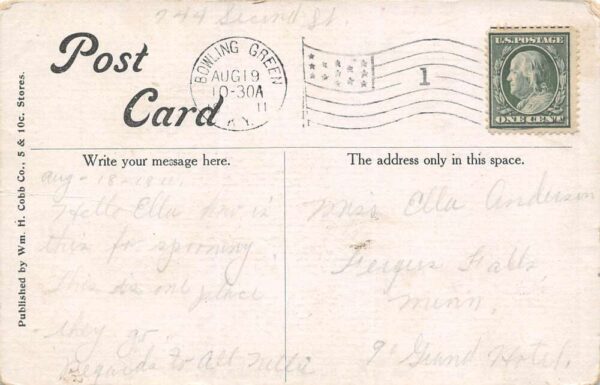 744 Second St.
Post Card
BOWLING GREEN
AUG 19
10-30A
11
KY.
1
U.S. POSTAGE
ONE CENT
Published by Wm. H. Cobb Co., 5 & 10c. Stores.
Write your message here.
The address only in this space.
Aug - 18 - 1911.
Hello Ella how is
this for spooning
this is one place
they go.
Regards to All Nellie
Miss Ella Anderson
Fergus Falls,
Minn.
Grand Hotel.